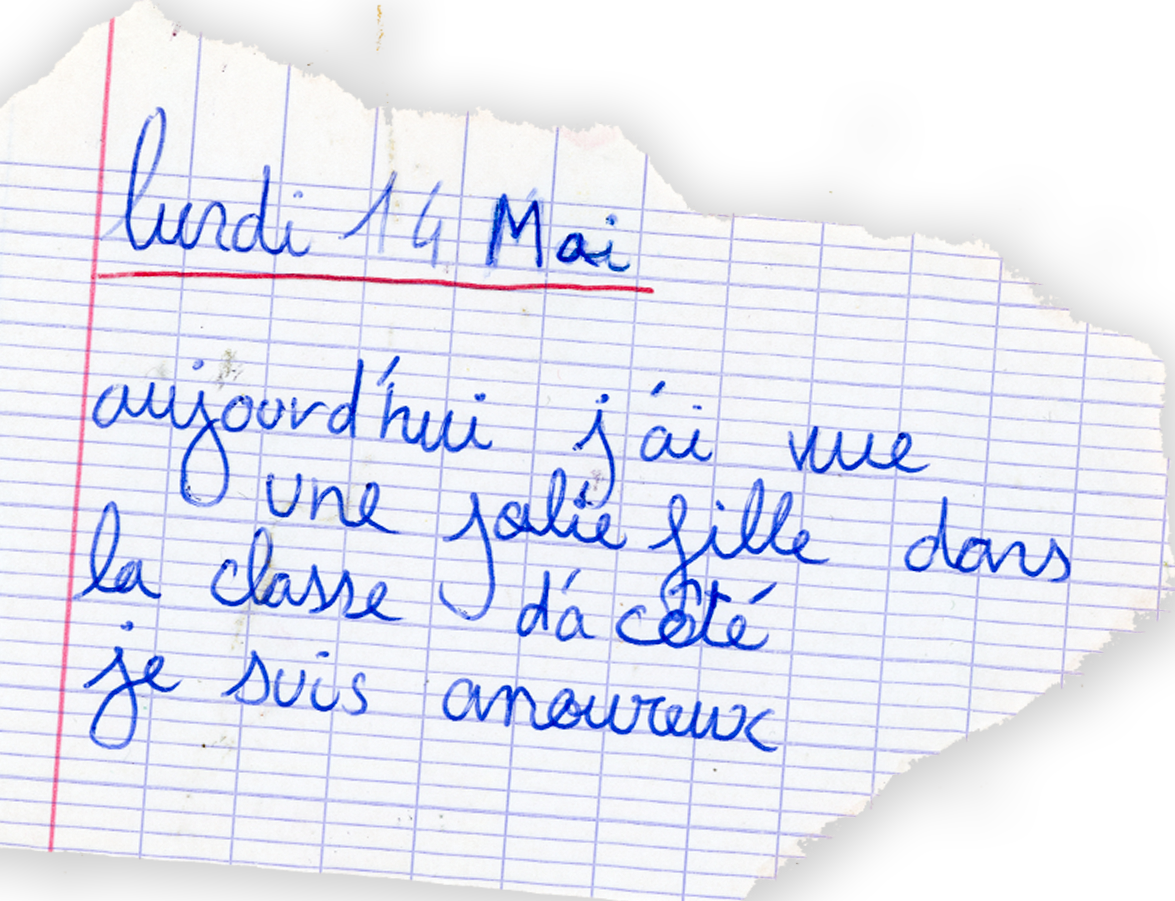 lundi 14 Mai
aujourd'hui j'ai vue
une jolie fille dans
la classe d'à côté
je suis amoureux